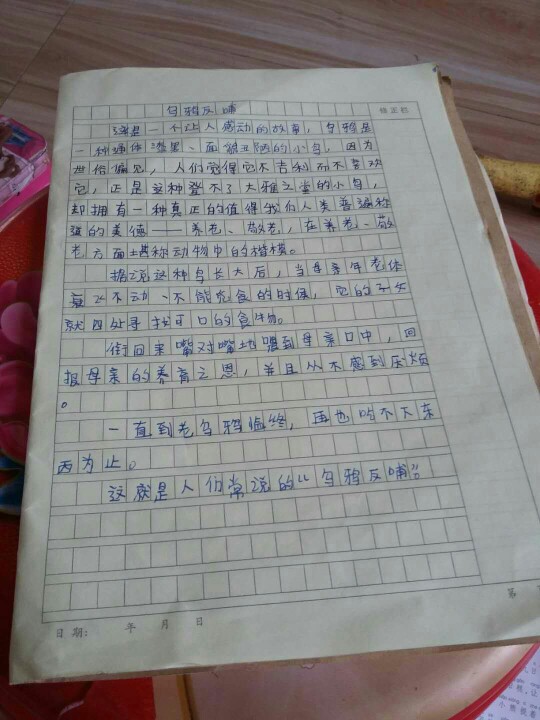 乌鸦反哺
修正栏
这是一个让人感动的故事，乌鸦是
一种通体漆黑、面貌丑陋的小鸟，因为
世俗偏见，人们觉得它不吉利而不喜欢
它，正是这种登不了大雅之堂的小鸟，
却拥有一种真正的值得我们人类普遍称
颂的美德——养老、敬老，在养老、敬
老方面堪称动物中的楷模。
据说这种鸟长大后，当母亲年老体
衰飞不动、不能觅食的时候，它的子女
就四处寻找可口的食物。
衔回来嘴对嘴地喂到母亲口中，回
报母亲的养育之恩，并且从不感到厌烦
。
一直到老乌鸦临终，再也吃不下东
西为止。
这就是人们常说的“乌鸦反哺”
日期： 年 月 日
第